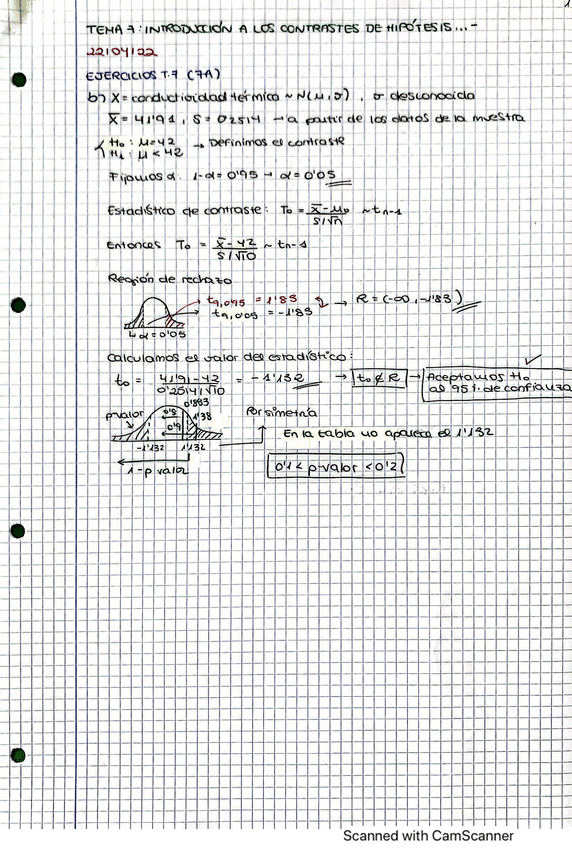 TEMA 7: INTRODUCCIÓN A LOS CONTRASTES DE HIPÓTESIS...-
22/04/22
EJERCICIOS T.7 (7A)
b) X = conductividad térmica ~ N(μ,σ), σ desconocida
X̄ = 41'91, S = 0'2514 → a partir de los datos de la muestra
{ H₀: μ=42
H₁: μ < 42 → Definimos el contraste
Fijamos α: 1-α = 0'95 → α = 0'05
Estadístico de contraste: T₀ = (X̄-μ₀)/(S/√n) ~ tn-1
Entonces T₀ = (X̄-42)/(S/√10) ~ tn-1
Región de rechazo
t9,0'95 = 1'83
t9,0'05 = -1'83 → R = (-∞, -1'83)
α = 0'05
Calculamos el valor del estadístico:
t₀ = (41'91-42)/(0'2514/√10) = -1'132 → t₀ ∉ R → Aceptamos H₀
al 95%. de confianza
0'883
p valor 0'8 1'38 Por simetría
0'9
En la tabla no aparece el 1'132
-1'132 1'132
1-p valor
0'1 < p-valor < 0'2
Scanned with CamScanner